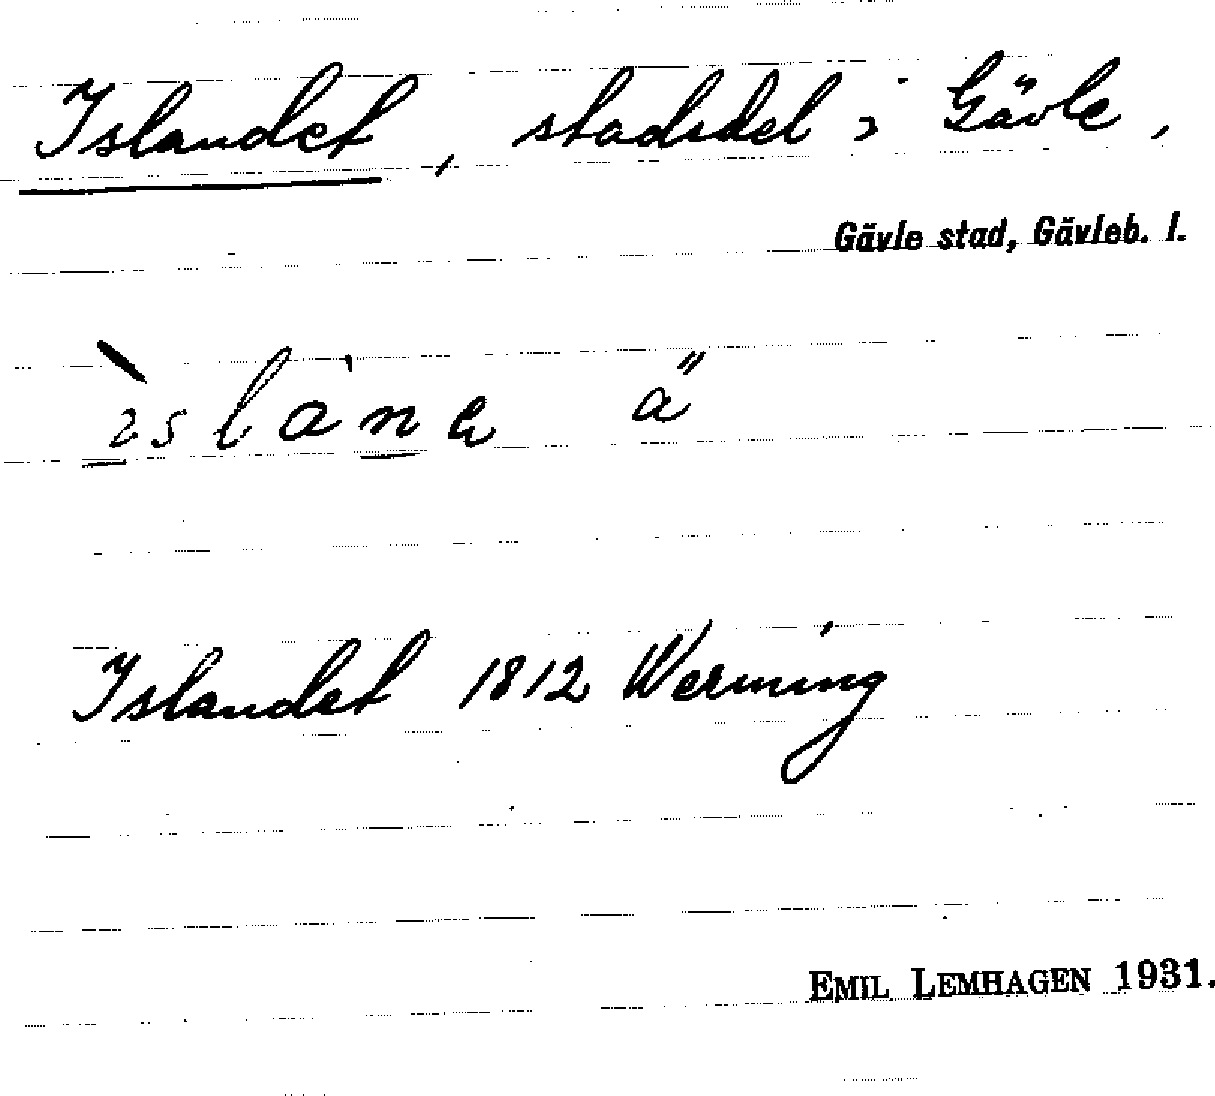 Islandet, stadsdel i Gävle,
Gävle stad, Gävleb. l.
ìslàne ä
Islandet 1812 Werming
EMIL LEMHAGEN 1931.